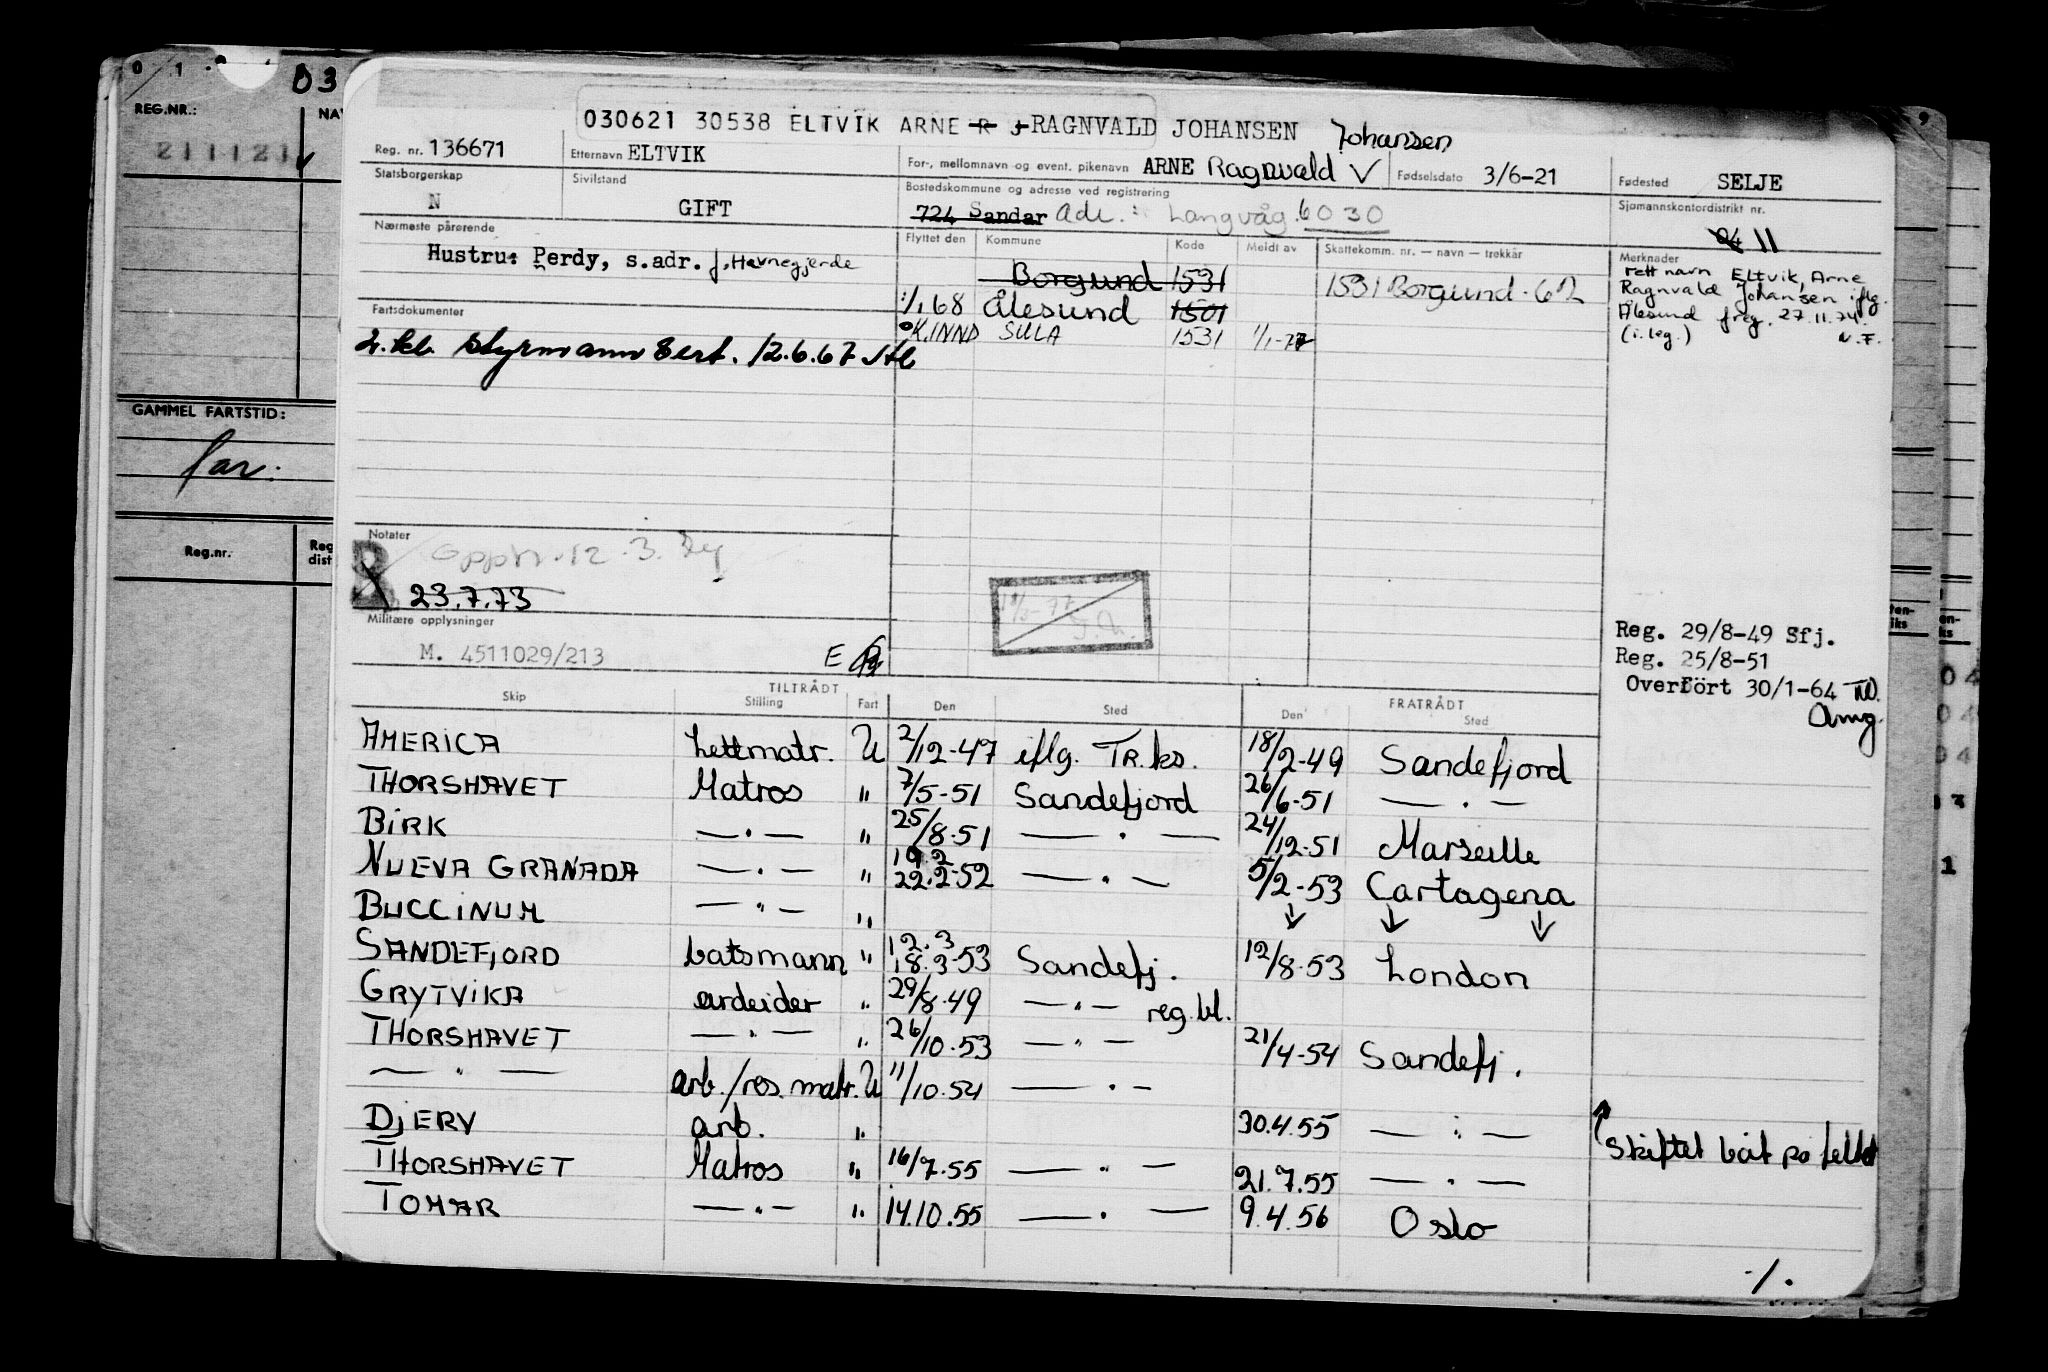 0 1
03
REG.NR.:
NAV
211121
GAMMEL FARTSTID:
far:
Reg.nr.
Reg
dist
030621 30538 ELTVIK ARNE R J RAGNVALD JOHANSEN
Johansen
Reg. nr. 136671
Etternavn ELTVIK
For-, mellomnavn og event. pikenavn ARNE Ragnvald V
Fødselsdato 3/6-21
Fødested SELJE
Statsborgerskap
N
Sivilstand
GIFT
Bostedskommune og adresse ved registrering
724 Sandar Adr.: Langvåg. 6030
Sjømannskontordistrikt nr.
04 11
Nærmeste pårørende
Hustru: Perdy, s.adr. f. Havnegjerde
Flyttet den Kommune Kode Meldt av Skattekomm. nr. — navn — trekkår
Borgund 1531
1/1 68 Ålesund 1501
K.INND SULA 1531 1/1-77
1531 Borgund - 62
Merknader
rett navn Eltvik, Arne
Ragnvald Johansen iflg.
Ålesund freg. 27.11.74.
(i. leg.) N.F.
Fartsdokumenter
2. kl. styrmann sert. 12.6.67
Notater
12.3.74
23.7.73
Militære opplysninger
M. 4511029/213
E
Reg. 29/8-49 Sfj.
Reg. 25/8-51
Overført 30/1-64
TILTRÅDT FRATRÅDT
Skip Stilling Fart Den Sted Den Sted
AMERICA Lettmatr. U 2/12-47 iflg. TR.ks. 18/2-49 Sandefjord
THORSHAVET Matros " 7/5-51 Sandefjord 26/6-51 — " —
BIRK — " — " 25/8-51 — " — 24/12-51 Marseille
NUEVA GRANADA — " — " 19.2 22.2-52 — " — 5/2-53 Cartagena
BUCCINUM — " — " ↓ ↓ ↓
SANDEFJORD batsmann " 12.3 18.3-53 Sandefj. 12/8-53 London
GRYTVIKA arbeider " 29/8-49 — " — reg. bl.
THORSHAVET — " — " 26/10-53 — " — 21/4-54 Sandefj.
— " — arb./res. matr. U 11/10-54 — " —
DJERV arb. " 30.4.55 — " — ↑ skiftet båt på feltet
THORSHAVET Matros " 16/7.55 — " — 21.7.55 — " —
TOMAR — " — " 14.10.55 — " — 9.4.56 Oslo
-/.